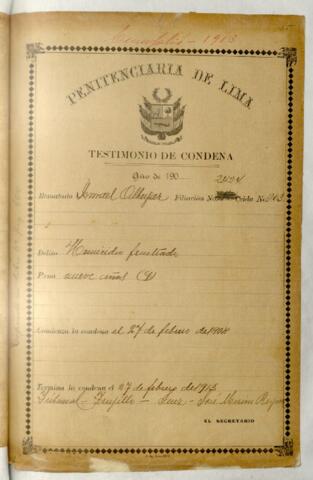 1913
PENITENCIARIA DE LIMA
TESTIMONIO DE CONDENA
Año de 190
Rematado Ismael Filiación No. 2424 Celda No.
Delito Homicidio frustrado
Pena nueve años (9)
Comienza la condena el 27 de febrero de 1904
Termina la condena el 27 de febrero de 1913
Tribunal - Trujillo - Juez - José
EL SECRETARIO